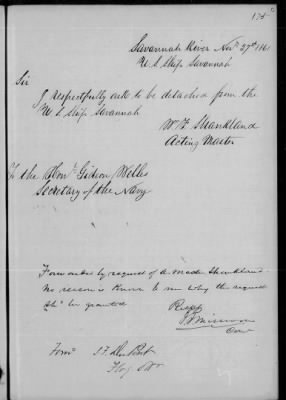 135
Savannah River Nov 27th 1861
U.S. Ship Savannah
Sir
I respectfully ask to be detached from the
U S Ship Savannah
W F Shankland
Acting Master
To the Honl. Gideon Welles
Secretary of the Navy
Forwarded by request of A. Master Shankland.
No reason is known to me why the request
shd be granted
Respy
J S Missroon
Com
Forwd S. F. Du Pont
Flag Offr